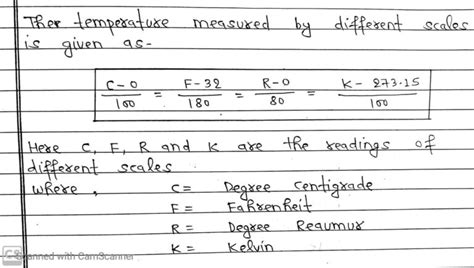 Ther temperature measured by different scales
is given as-
C-0/100 = F-32/180 = R-0/80 = K-273.15/100
Here C, F, R and K are the readings of
different scales
where,
C= Degree Centigrade
F= Fahrenheit
R= Degree Reaumur
K= Kelvin
CS Scanned with CamScanner